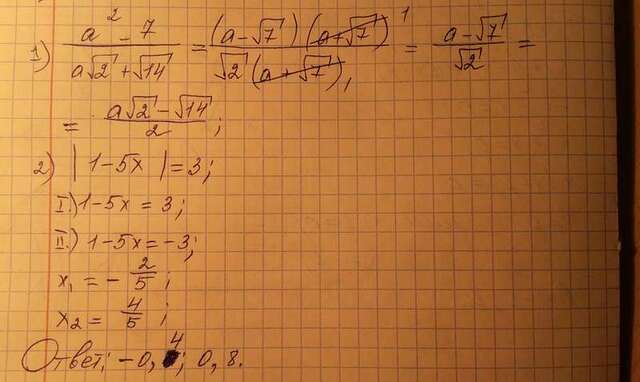 1) (a² - 7)/(a√2 + √14) = ((a - √7)(a + √7)¹)/(√2(a + √7)₁) = (a - √7)/√2 =
= (a√2 - √14)/2;
2) |1 - 5x| = 3;
I.) 1 - 5x = 3;
II.) 1 - 5x = -3;
x₁ = - 2/5;
x₂ = 4/5;
Ответ: -0,4; 0,8.